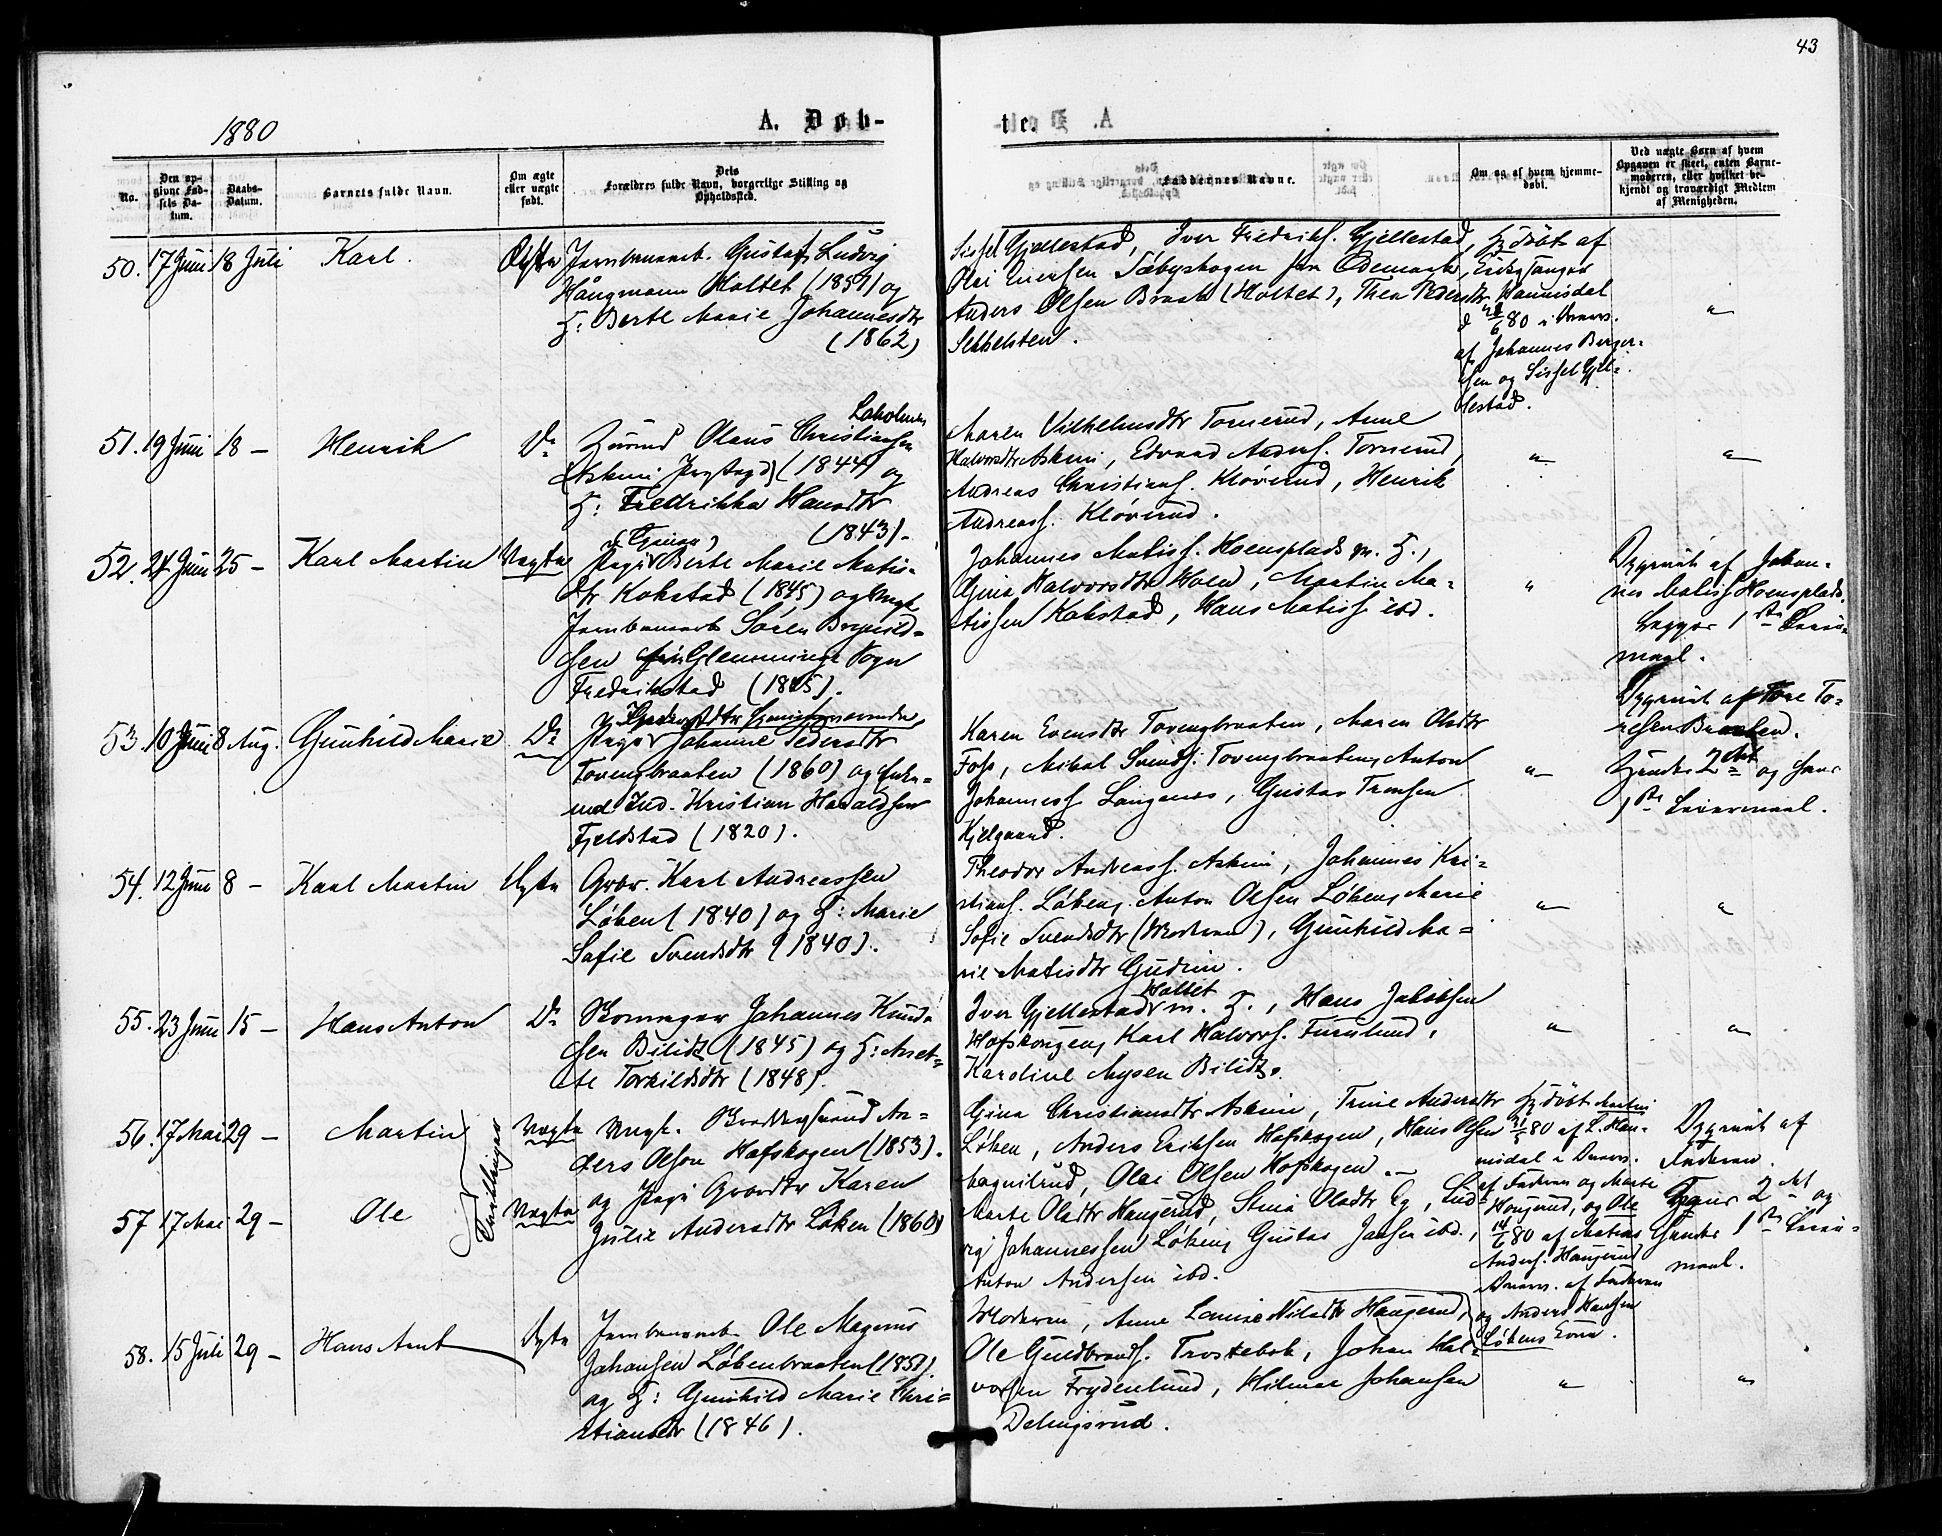 43
1880
A. Døb-
te.
No.
Den op-
givne Fød-
sels Da-
tum.
Daabs-
Datum.
Barnets fulde Navn.
Om ægte
eller uægte
født.
Dets
Forældres fulde Navn, borgerlige Stilling og
Opholdssted.
Faddernes Navne.
Om og af hvem hjemme-
døbt.
Ved uægte Børn af hvem
Opgaven er skeet, enten Barne-
moderen, eller hvilket be-
kjendt og troværdigt Medlem
af Menigheden.
50. 17 Juni 18 Juli Karl. Ægte
Jernbanearb. Gustaf Ludvig
Håugmann Holtet (1857) og
H: Berte Marie Johannesdtr
(1862)
Sissel Gjellestad, Iver Fredriks. Gjellestad,
Olai Iversen Sæbyskogen fra Ødemark,
Anders Olsen Braate (Holtet), Thea Pedersdtr
Sekkelsten.
Hj. døbt af
Hannisdal
af Johannes Berger-
sen og Sissel Gjel-
lestad.
"
51. 19 Juni 18 – Henrik Do
Laholmen
Olaus Christiansen
(1844) og
H: Fredrikka Hansdtr
(1843).
Maren Vilhelmsdtr Tornerud, Anne
Halvorsdtr Askim, Edvard Anders. Tornerud,
Andreas Christians. Kløverud, Henrik
Andreass. Kløverud.
"
"
52. 24 Juni 25 – Karl Martin Uægte
Pige Berte Marie Matis-
dtr Kokstad (1845) og Ungk.
Jernbanearb. Søren Brynild-
sen Glemminge Sogn
Fredrikstad (1845).
Johannes Matiss. Hoensplads m. H.,
Gina Halvorsdtr Holm, Martin Ma-
tissen Kokstad, Hans Matiss. ibd.
"
Opgivet af Johan-
nes Matiss. Hoensplads.
Begges 1ste Leier-
maal.
53. 10 Juni 8 Aug. Gunhild Marie Do
Pige Johanne Pedersdtr
Tovengbraaten (1860) og Enke-
md Ind. Kristian Haraldsen
Fjeldstad (1820).
Karen Evensdtr Tovengbraaten, Maren Olsdtr
Foss, Mikal Svends. Tovengbraaten, Anton
Johanness. Langenes, Gustav Tronsen
Kjelgaard.
"
Opgivet af Tore To-
resen Braaten.
Hendes 2det og hans
1ste Leiermaal.
54. 12 Juni 8 – Karl Martin Ægte
Grbr. Karl Andreassen
Løken (1840) og H: Marie
Sofie Svendsdtr (1840).
Theodor Andreass. Askim, Johannes Kri-
stians. Løken, Anton Olsen Løken, Marie
Sofie Svendsdtr (Moderen), Gunhild Ma-
rie Matisdtr Gudim.
"
"
55. 23 Juni 15 – Hans Anton Do
Skomager Johannes Knud-
sen Bilidt (1845) og H: Anet-
te Torkildsdtr (1848).
Holtet
Iver Gjellestad m. H., Hans Jakobsen
Hofskougen, Karl Halvors. Furulund,
Karoline Mysen Bilidt.
"
"
56. 17 Mai 29 – Martin Uægte
57 17 Mai 29 – Ole Uægte
Tvillinger
Ungk. An-
ders Olsen Hofskogen (1853).
og Pige Karen
Julie Andersdtr Løken (1860)
Gina Christiansdtr Askim, Trine Andersdtr
Løken, Anders Eriksen Hofskogen, Hans Olsen
Magnilrud, Olai Olsen Hofskogen. –
Marte Olsdtr Haugerud, Stina Olsdtr Eg, Lud-
vig Johannessen Løken, Gustav Jansen ibd.,
Anton Andersen ibd.
Hj. døbt Martin
31/5 80 af L. Han-
nisdal
af Faderen og Marte
Haugerud, og Ole
14/6 80 af Matias
Anders. Haugerud
af Faderen
og Anders Hansen
Løkens Eie.
Opgivet af
Faderen.
Hans 2det og
Hendes 1ste Leier-
maal.
58. 15 Juli 29 – Hans Arnt Ægte
Jernbanearb. Ole Magnus
Johansen Løkenbraaten (1851)
og H: Gunhild Marie Chri-
stiansdtr (1846).
Moderen, Anne Louise Nilsdtr Haugerud,
Ole Guldbrands. Trostebok, Johan Hal-
vorsen Frydenlund, Hilmar Johansen
Delingsrud.
"
"